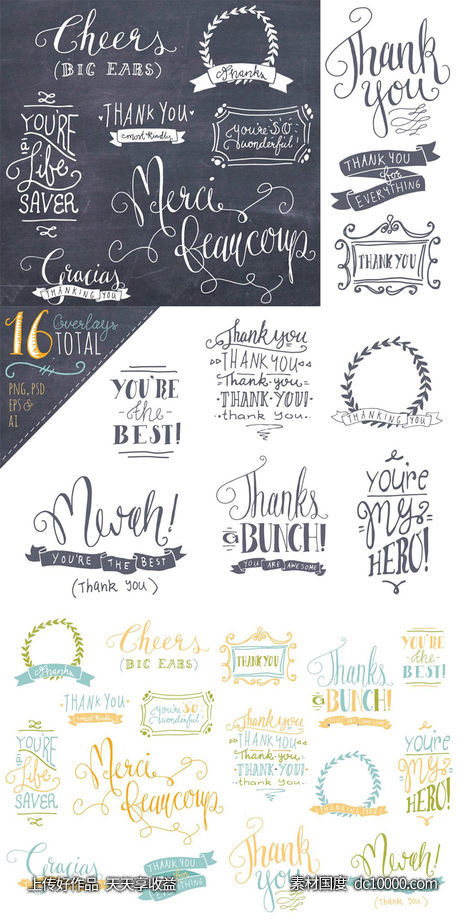 Cheers
(BIG EARS)
thanks
Thank
you
THANK YOU
most kindly
you're SO
wonderful!
YOU'RE
a
Life
SAVER
THANK YOU
for
EVERYTHING
Merci
Beaucoup
THANK YOU
Gracias
THANKING YOU
16
Overlays
TOTAL
PNG, PSD
EPS &
AI
YOU'RE
the
BEST!
Thank you
THANK YOU
Thank you
THANK YOU!
thank you
THANKING YOU
Mwah!
YOU'RE THE BEST
(Thank you)
Thanks
a BUNCH!
YOU ARE AWESOME
you're
My
HERO!
thanks
Cheers
(BIG EARS)
THANK YOU
YOU'RE
the
BEST!
Thanks
a BUNCH!
THANK YOU
most kindly
you're SO
wonderful!
YOU'RE
a
Life
SAVER
Merci
Beaucoup
Thank you
THANK YOU
Thank you
THANK YOU!
thank you
THANKING YOU
you're
My
HERO!
Gracias
THANK YOU
for
EVERYTHING
Thank
you
Mwah!
上传好作品 天天享收益
素材国度 dc10000.com